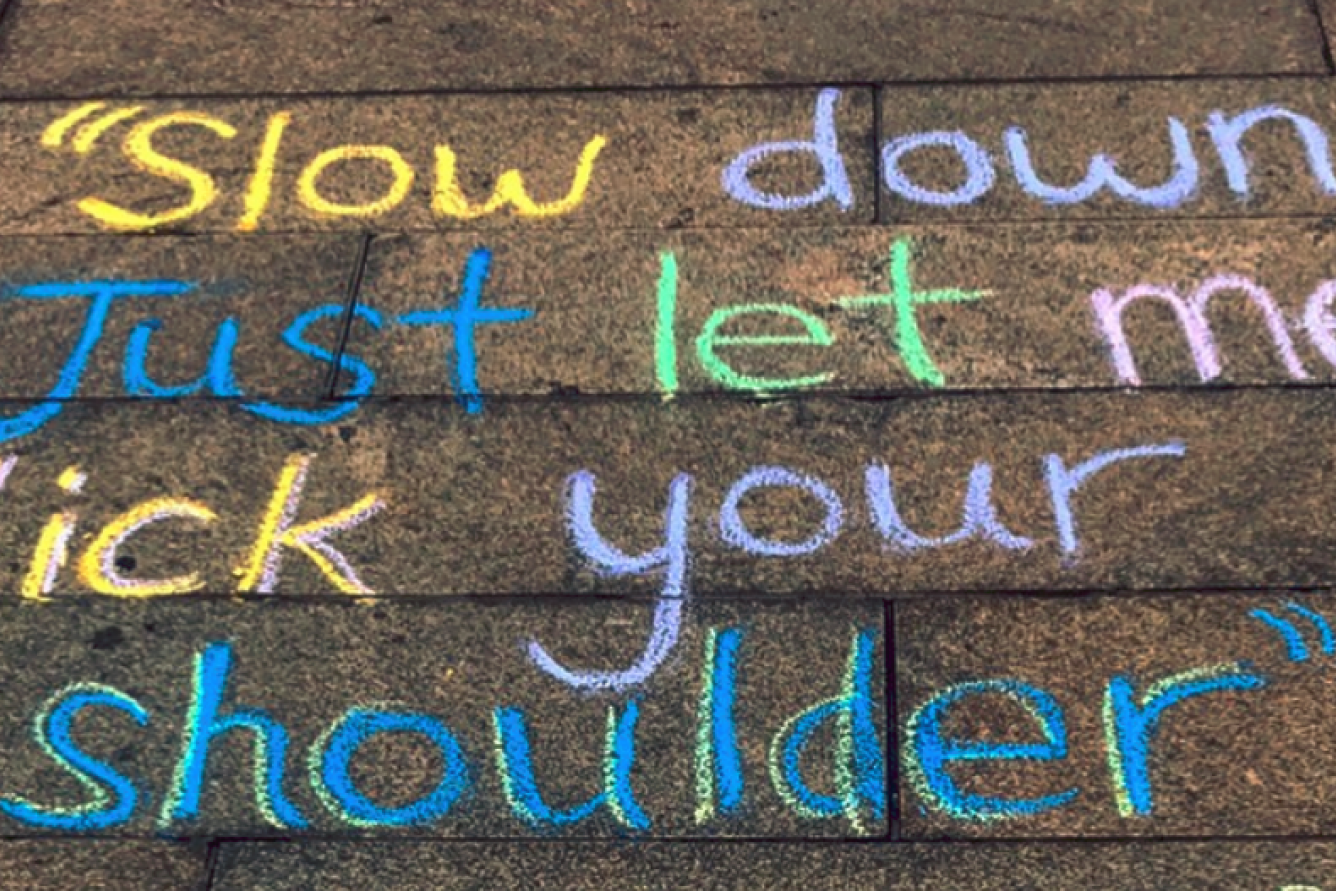 “Slow down
Just let me
ick your
shoulder”